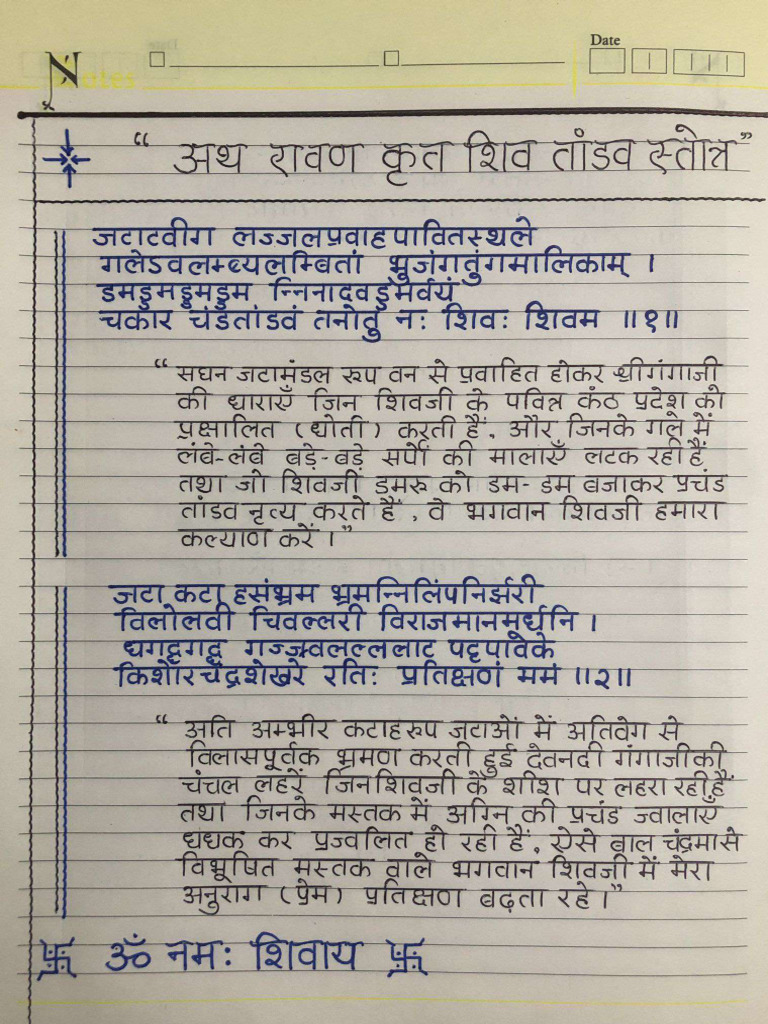 N
Notes
Date
“ अथ रावण कृत शिव तांडव स्तोत्र”
जटाटवीग लज्जलप्रवाहपावितस्थले
गलेऽवलम्ब्यलम्बितां भुजंगतुंगमालिकाम् ।
डमड्डमड्डमड्डम न्निनादवड्डमर्वयं
चकार चंडतांडवं तनोतु नः शिवः शिवम ॥१॥
“ सघन जटामंडल रूप वन से प्रवाहित होकर श्रीगंगाजी
की धाराएँ जिन शिवजी के पवित्र कंठ प्रदेश को
प्रक्षालित (धोती) करती हैं, और जिनके गले में
लंबे-लंबे बड़े-बड़े सर्पों की मालाएँ लटक रही हैं
तथा जो शिवजी डमरू को डम-डम बजाकर प्रचंड
तांडव नृत्य करते हैं, वे भगवान शिवजी हमारा
कल्याण करें।”
जटा कटा हसंभ्रम भ्रमन्निलिंपनिर्झरी
विलोलवी चिवल्लरी विराजमानमूर्धनि ।
धगद्धगद्ध गज्ज्वलल्ललाट पट्टपावके
किशोरचंद्रशेखरे रतिः प्रतिक्षणं ममं ॥२॥
“ अति अम्भीर कटाहरुप जटाओं में अतिवेग से
विलासपूर्वक भ्रमण करती हुई देवनदी गंगाजीकी
चंचल लहरें जिनशिवजी के शीश पर लहरा रही हैं
तथा जिनके मस्तक में अग्नि की प्रचंड ज्वालाएँ
धधक कर प्रज्वलित हो रही हैं, ऐसे बाल चंद्रमासे
विभूषित मस्तक वाले भगवान शिवजी में मेरा
अनुराग (प्रेम) प्रतिक्षण बढ़ता रहे।”
卐 ॐ नमः शिवाय 卐